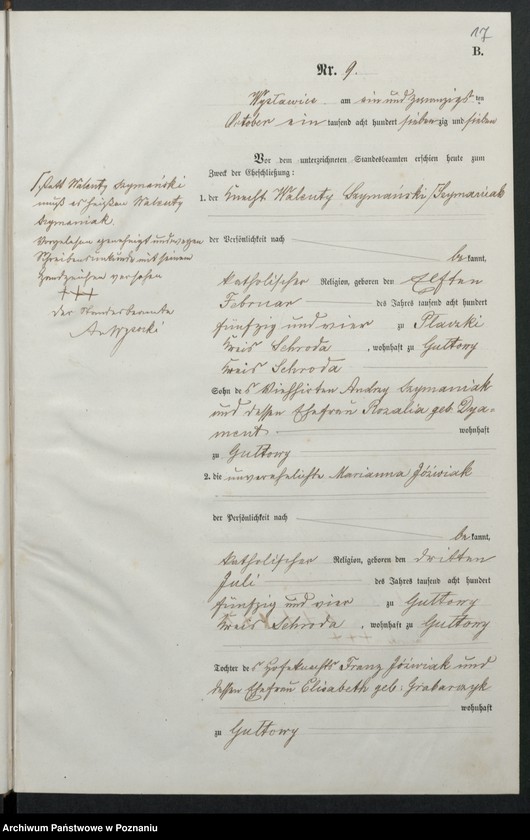 17
B.
Nr. 9.
Wyslawice am ein und zwanzigsten
October ein tausend acht hundert siebenzig und sieben
Vor dem unterzeichneten Standesbeamten erschien heute zum
Zweck der Eheschließung:
1. der Knecht Walenty Szymański /Szymaniak
der Persönlichkeit nach
bekannt,
katholischer Religion, geboren den Elften
Februar des Jahres tausend acht hundert
fünfzig und vier zu Placzki
Kreis Schroda, wohnhaft zu Gultowy
Kreis Schroda
Sohn des Viehhirten Andrzey Szymaniak
und dessen Ehefrau Rozalia geb. Dya-
ment wohnhaft
zu Gultowy
2. die unverehelichte Marianna Jóźwiak
der Persönlichkeit nach
bekannt,
katholischer Religion, geboren den dritten
Juli des Jahres tausend acht hundert
fünfzig und vier zu Gultowy
Kreis Schroda, wohnhaft zu Gultowy
Tochter des Hofeknechts Franz Jóźwiak und
dessen Ehefrau Elisabeth geb. Grabarczyk
wohnhaft
zu Gultowy
statt Walenty Szymański
muß es heißen Walenty
Szymaniak.
Vorgelesen genehmigt und wegen
Schreibensunkunde mit seinem
Handzeichen versehen
+++
der Standesbeamte
Archiwum Państwowe w Poznaniu